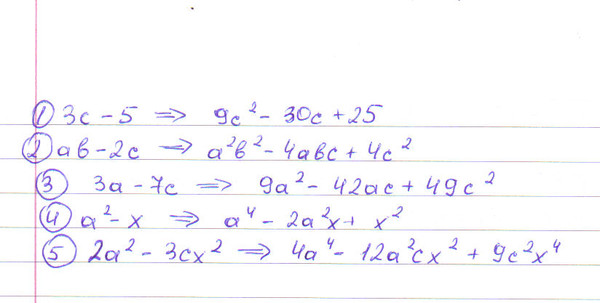 ① 3c - 5 ⇒ 9c² - 30c + 25
② ab - 2c ⇒ a²b² - 4abc + 4c²
③ 3a - 7c ⇒ 9a² - 42ac + 49c²
④ a² - x ⇒ a⁴ - 2a²x + x²
⑤ 2a² - 3cx² ⇒ 4a⁴ - 12a²cx² + 9c²x⁴